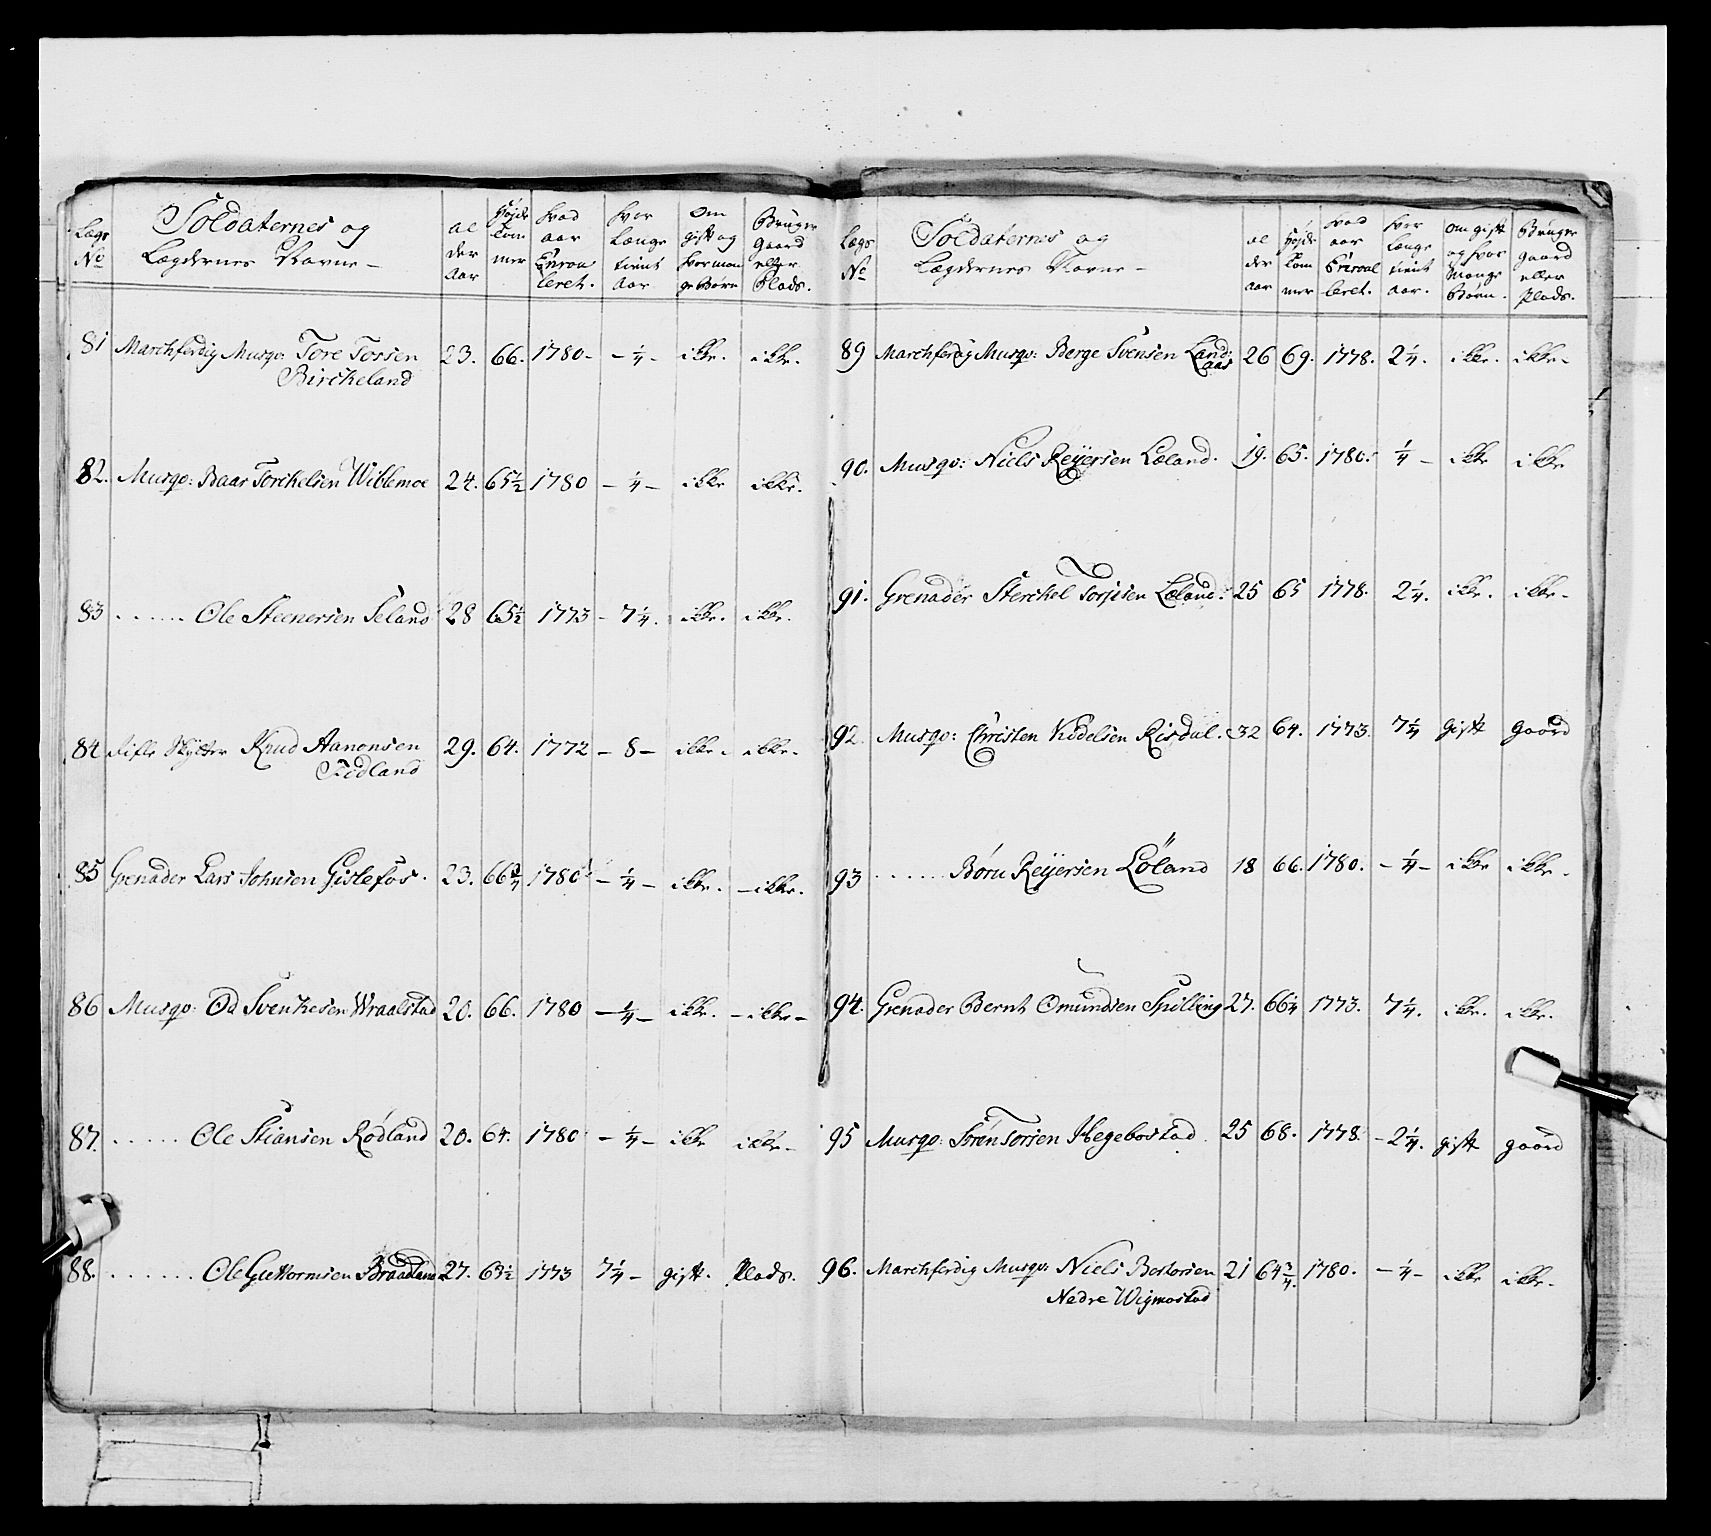 Lægs No
Soldaternes og Lægdernes Navne –
al der Aar
Højde Tom mer
hvad aar Enrou leret.
hvor længe tient Aar
Om gift og hvor man ge Børn
Bruger Gaard eller Plads.
81 Marchferdig Musqo: Tore Torsen 23. 66. 1780 – – ¼ – ikke. ikke.
Birckeland
82. Musqo: Baar Torchelsen Wiblemoe 24. 65½ 1780 – ¼ – ikke ikke.
83 . . . . . . Ole Steenersen Seland 28 65½ 1773 – 7¼. ikke. ikke.
84 Rifle Skytter Knud Aanonsen 29. 64. 1772 – 8 – ikke – ikke –
Fidland
85 Grenader Lars Johnsen Gislefos. 23. 66¾ 1780 – ¼ – ikke. – ikke.
86 Musqo: Od Svenkesen Wraalstad 20. 66. 1780 – ¼ – ikke. – ikke –
87. . . . . . Ole Stiansen Rødland 20. 64. 1780 – ¼ – ikke ikke –
88. . . . . . . Ole Guttormsen Braadland 27. 63½ 1773 7¼ – gift. Plads.
Lægs No
Soldaternes og Lægdernes Navne –
al der aar
Højde Tom mer
hvad aar Enroul leret.
hver længe tient aar.
Om gift og hvor Mange Børn.
Bruger gaard eller plads.
89 Marchferdig Musqo: Berge Svensen Land: 26 69. 1778. 2¼. ikke. ikke –
aas
90. Musqo: Niels Reyersen Læland. 19. 65. 1780. ¼ – ikke ikke
91. Grenader Sterckel Torjusen Læland. 25 65 1778. 2¼. ikke. ikke –
92. Musqo: Christen Kidelsen Risdal. 32 64. 1773. 7¼ gift gaard
93 . . . . . . Børu Reyersen Løland 18 66. 1780. – ¼ – ikke ikke.
94. Grenader Bernt Omundsen Spilling 27. 66¼ 1773. 7¼. ikke. ikke.
95 Musqo: Sørén Torsen Hegebostad. 25 68. 1778. – 2¼. gift gaard
96. Marchferdig Musqo: Niels Bertorsen 21 64¾. 1780. – ¼ – ikke ikke.
Nedre Wigmostad